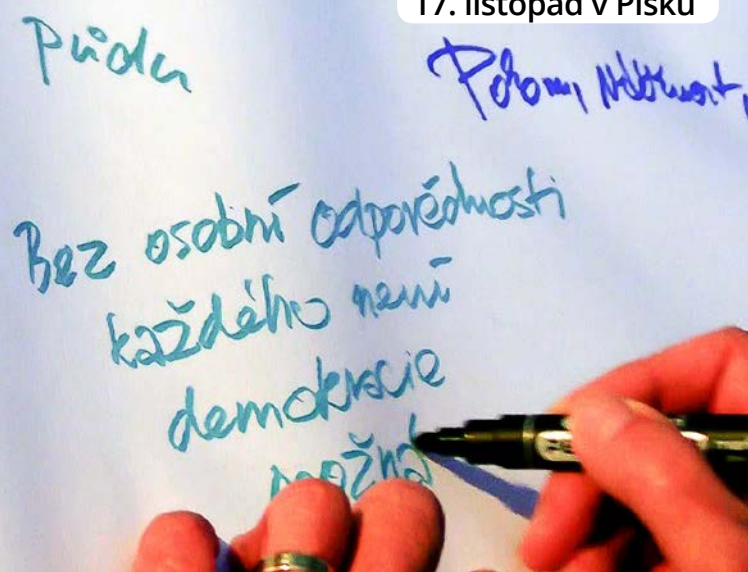 17. listopad v Písku
Bez osobní odpovědnosti
každého není
demokracie
možná